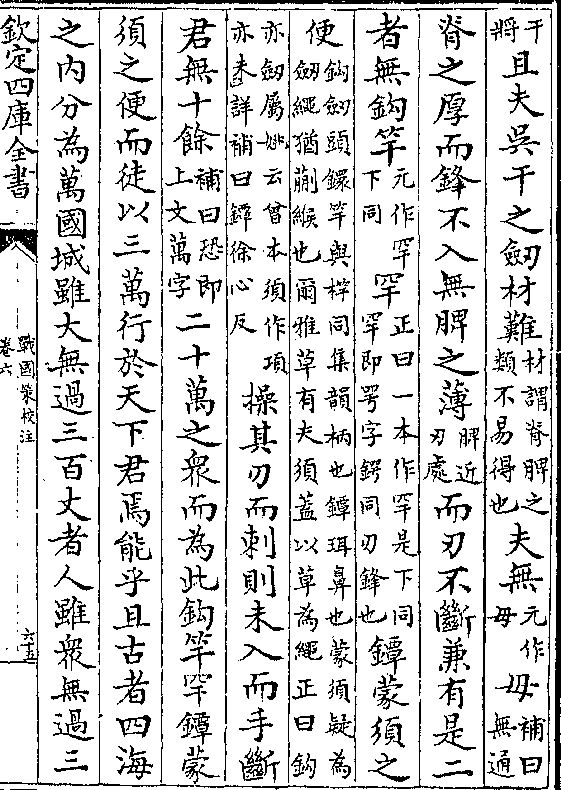 干將且夫吳干之劒材難材謂脊脾之類不易得也夫無元作毋毋補曰無通
脊之厚而鋒不入無脾之薄脾近刃處而刃不斷兼有是二
者無鈎竿元作罕下同罕正曰一本作罕是下同罕即咢字鍔同刃鋒也鐔蒙須之
便鈎劒頭鐶竿與桿同集韻柄也鐔珥鼻也蒙須疑為劒繩猶蒯緱也爾雅草有夫須蓋以草為繩正曰鈎
亦劒屬姚云曾本須作項亦未詳補曰鐔徐心反操其刃而刺則未入而手斷
君無十餘補曰恐即上文萬字二十萬之衆而為此鈎竿罕鐔蒙
須之便而徒以三萬行於天下君焉能乎且古者四海
之内分為萬國城雖大無過三百丈者人雖衆無過三
欽定四庫全書
戰國策校注
卷六
六十五